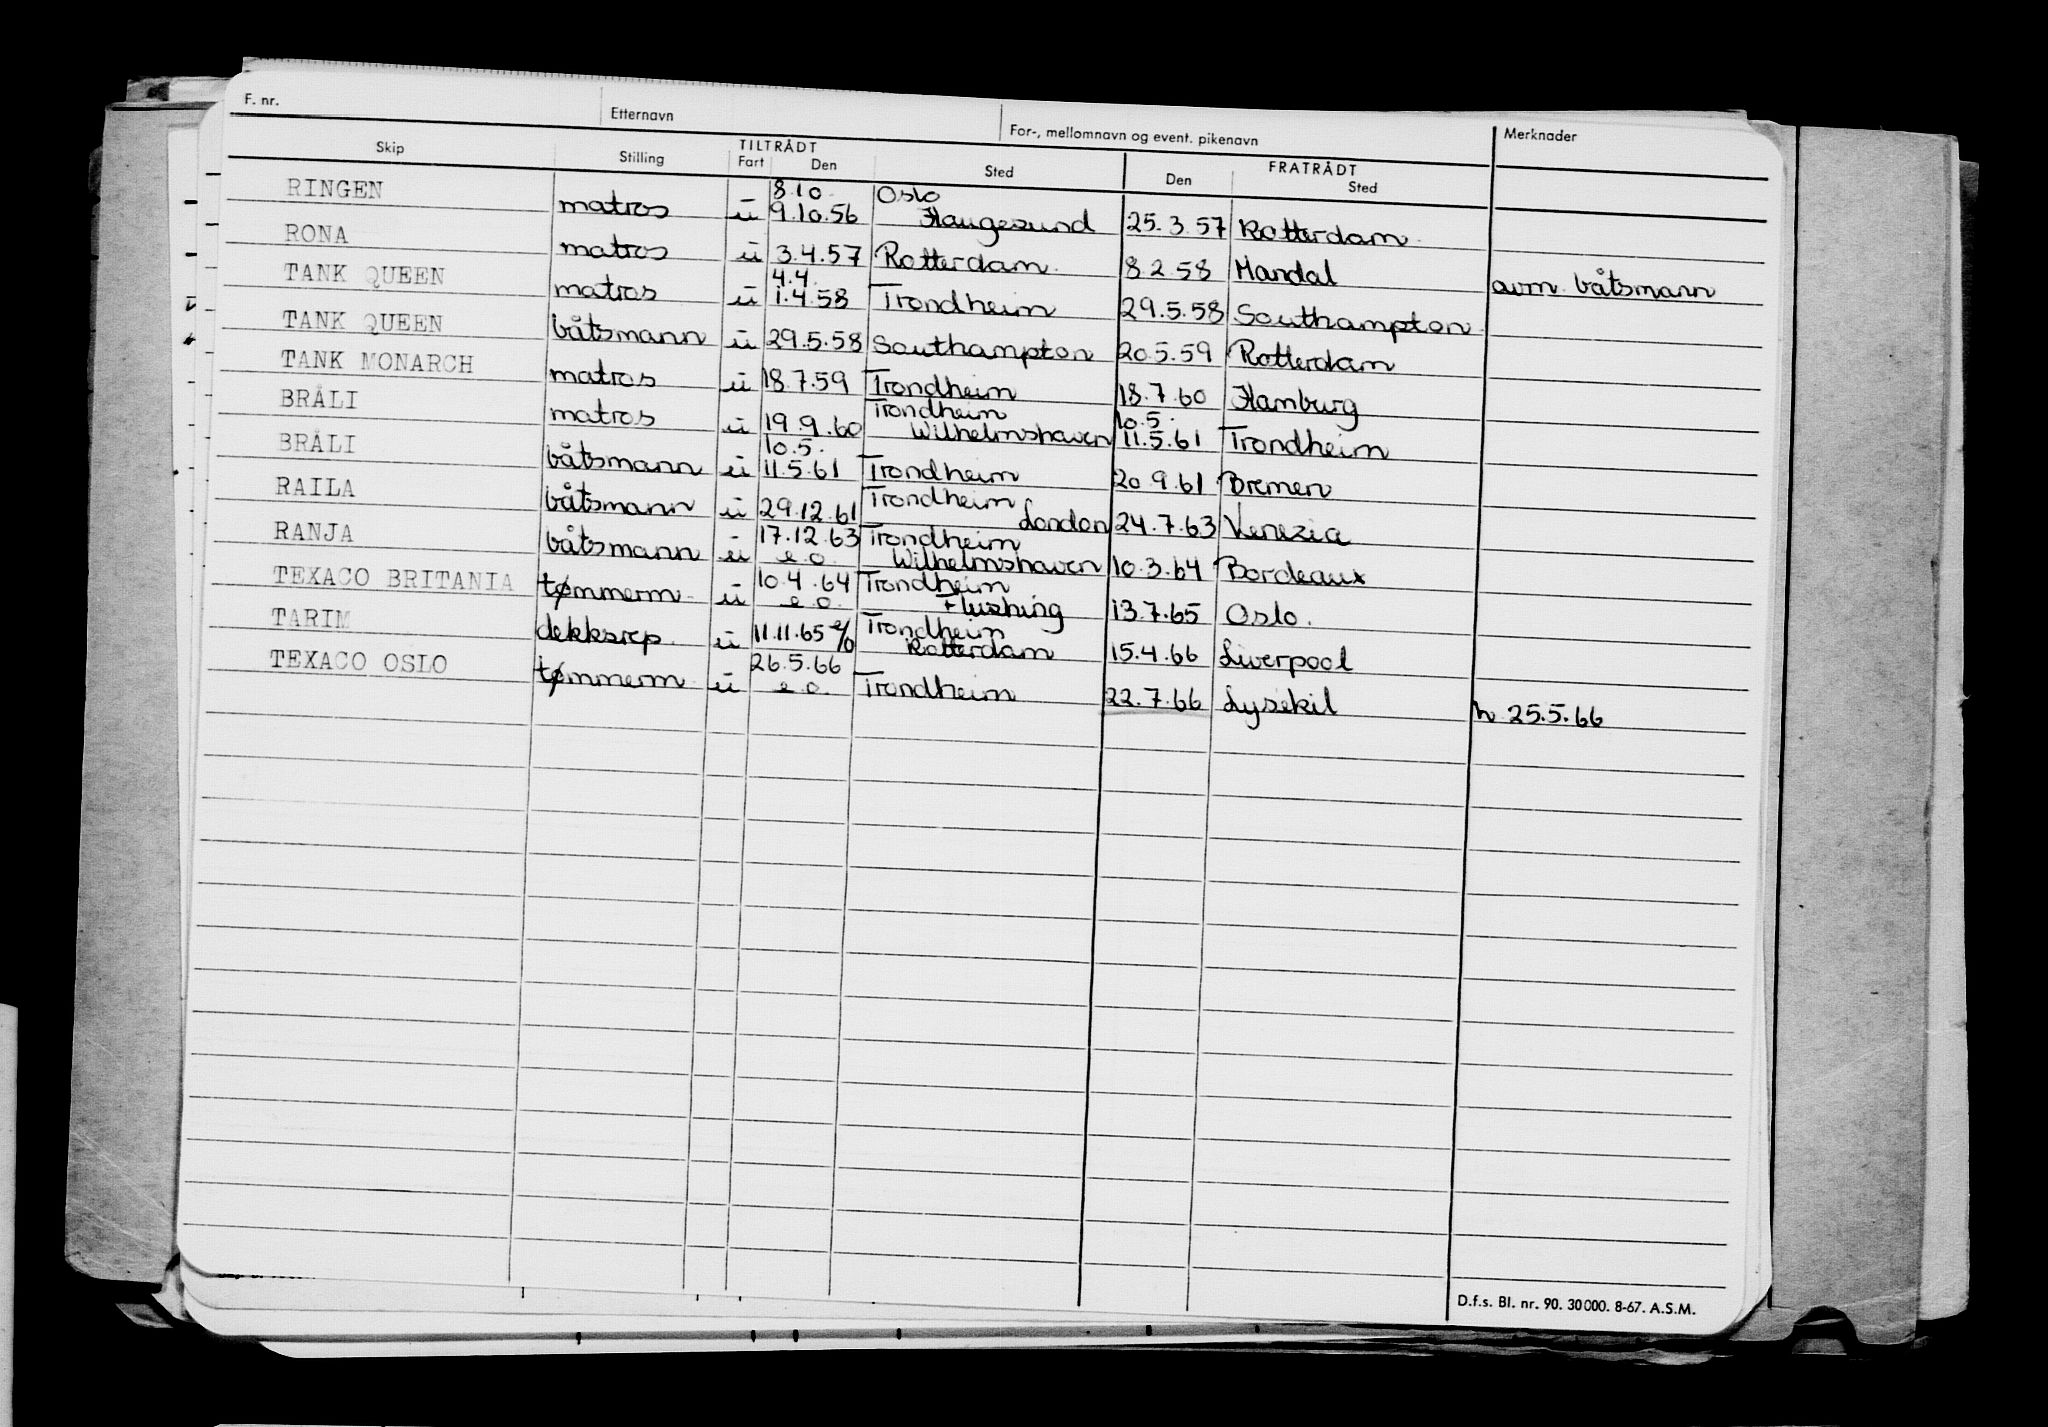 F. nr. Etternavn For-, mellomnavn og event. pikenavn Merknader
Skip Stilling TILTRÅDT Fart Den Sted FRATRÅDT Den Sted
RINGEN matros u 8.10. 9.10.56 Oslo Haugesund 25.3.57 Rotterdam
RONA matros u 3.4.57 Rotterdam 8.2.58 Mandal avm. båtsmann
TANK QUEEN matros u 4.4. 1.4.58 Trondheim 29.5.58 Southampton
TANK QUEEN båtsmann u 29.5.58 Southampton 20.5.59 Rotterdam
TANK MONARCH matros u 18.7.59 Trondheim 18.7.60 Hamburg
BRÅLI matros u 19.9.60 Trondheim Wilhelmshaven 10.5. 11.5.61 Trondheim
BRÅLI båtsmann u 10.5. 11.5.61 Trondheim 20.9.61 Bremen
RAILA båtsmann u 29.12.61 Trondheim London 24.7.63 Venezia
RANJA båtsmann u 17.12.63 e.o. Trondheim Wilhelmshaven 10.3.64 Bordeaux
TEXACO BRITANIA tømmerm. u 10.4.64 e.o. Trondheim Flushing 13.7.65 Oslo.
TARIM dekksrep. u 11.11.65 e/o Trondheim Rotterdam 15.4.66 Liverpool
TEXACO OSLO tømmerm. u 26.5.66 e.o. Trondheim 22.7.66 Lysekil h 25.5.66
D.f.s. Bl. nr. 90. 30000. 8-67. A.S.M.